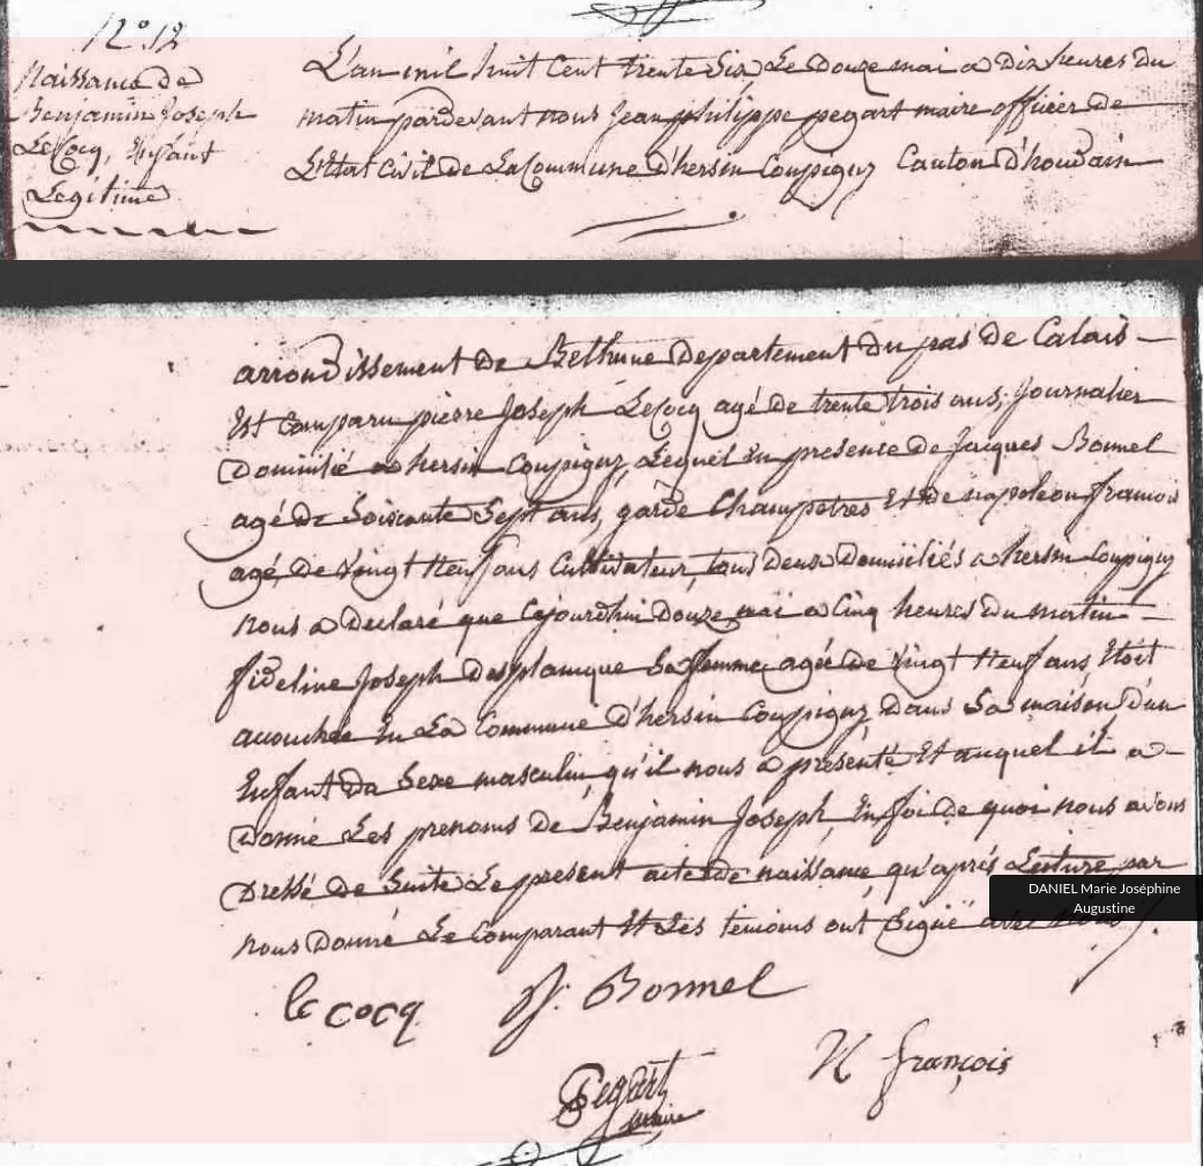 N° 52
Naissance de
Benjamin Joseph
LeCocq, Enfant
Legitime
L'an mil huit Cent trente Six, Le douze mai a dix heures du
matin pardevant nous Jean philippe pegart maire officier de
L'Etat Civil de La Commune d'hersin Coupigny Canton d'houdain
arrondissement de Bethune departement du pas de Calais
Est Comparu pierre Joseph LeCocq agé de trente trois ans, Journalier
Domicilié a hersin Coupigny, Lequel En presence de Jacques Bonnel
agé de Soixante Sept ans, garde Champetres Et de napoleon francois
agé de Vingt Neuf ans Cultivateur, tous deux Domiciliés a hersin Coupigny
Nous a declaré que Cejourdhui douze mai a Cinq heures du matin
fideline Joseph desplanque Sa femme agée de Vingt Neuf ans, Etoit
accouchée En La Commune d'hersin Coupigny Dans Sa maison d'un
Enfant du Sexe masculin qu'il nous a présenté Et auquel il a
Donné Les prenoms de Benjamin Joseph En foi de quoi nous avons
Dressé de Suite Le present acte de naissance, qu'aprés Lecture par
nous Donné Le Comparant Et Les temoins ont Signé avec nous
DANIEL Marie Joséphine
Augustine
le cocq J. Bonnel
N francois
Pegart
maire